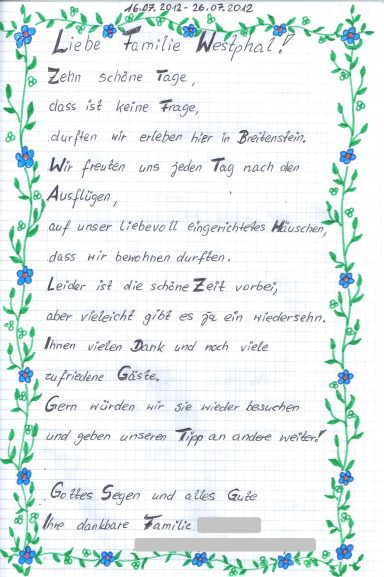 16.07.2012-26.07.2012
Liebe Familie Westphal!
Zehn schöne Tage,
dass ist keine Frage,
durften wir erleben hier in Breitenstein.
Wir freuten uns jeden Tag nach den
Ausflügen,
auf unser liebevoll eingerichtetes Häuschen,
dass wir bewohnen durften.
Leider ist die schöne Zeit vorbei,
aber vieleicht gibt es ja ein wiedersehn.
Ihnen vielen Dank und noch viele
zufriedene Gäste.
Gern würden wir sie wieder besuchen
und geben unseren Tipp an andere weiter!
Gottes Segen und alles Gute
Ihre dankbare Familie